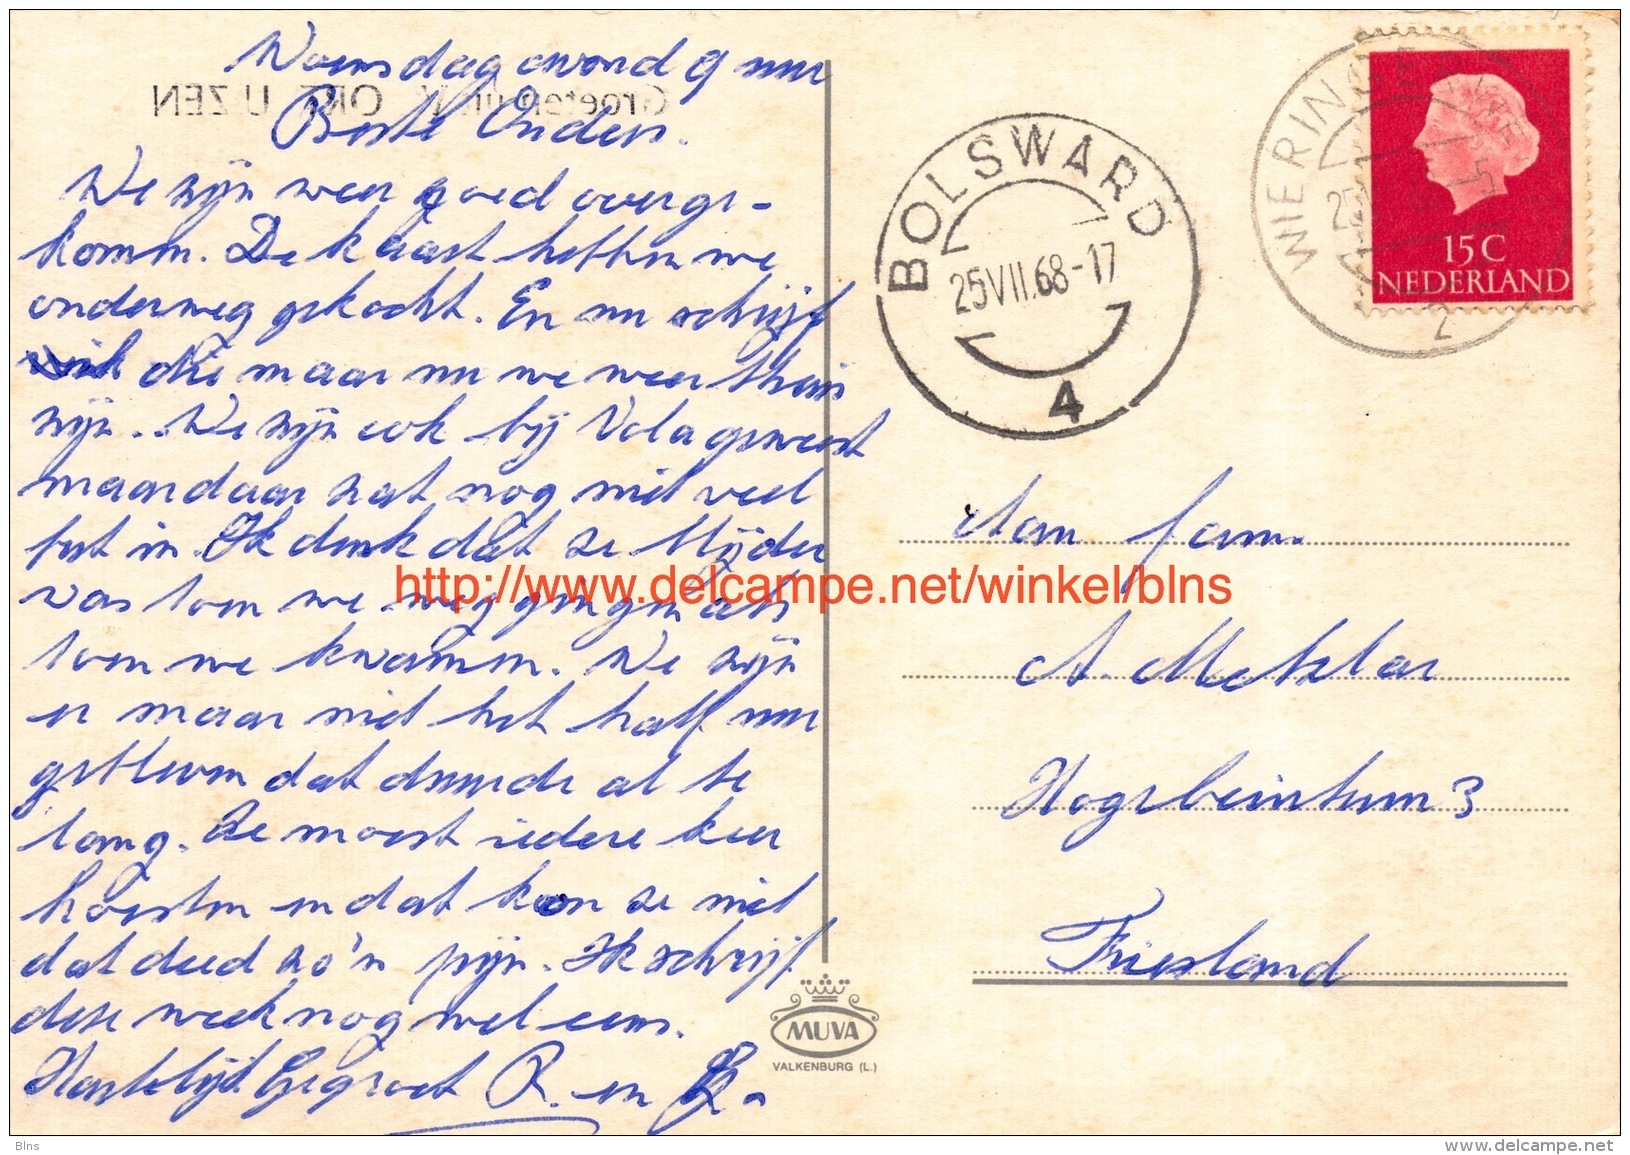 Woensdag avond 9 uur
Beste Ouders.
We zijn weer goed overge-
komen. De kaart hebben we
onderweg gekocht. En nu schrijf
die maar nu we weer thuis
zijn. We zijn ook bij Vola geweest
maar daar zat nog niet veel
fut in. Ik denk dat ze blijder
was toen we weg gingen als
toen we kwamen. We zijn
er maar niet het half uur
gebleven dat duurde al te
lang. Ze moest iedere keer
hoesten en dat kon ze niet
dat deed zo'n pijn. Ik schrijf
deze week nog wel eens.
Hartelijk Gegroet R. en
BOLSWARD
25VII.68-17
4
WIERINGE
15 C
NEDERLAND
Aan fam.
A. Metzlar
Hogebeintum 3
Friesland
MUVA
VALKENBURG (L.)
http://www.delcampe.net/winkel/blns
Blns
www.delcampe.net